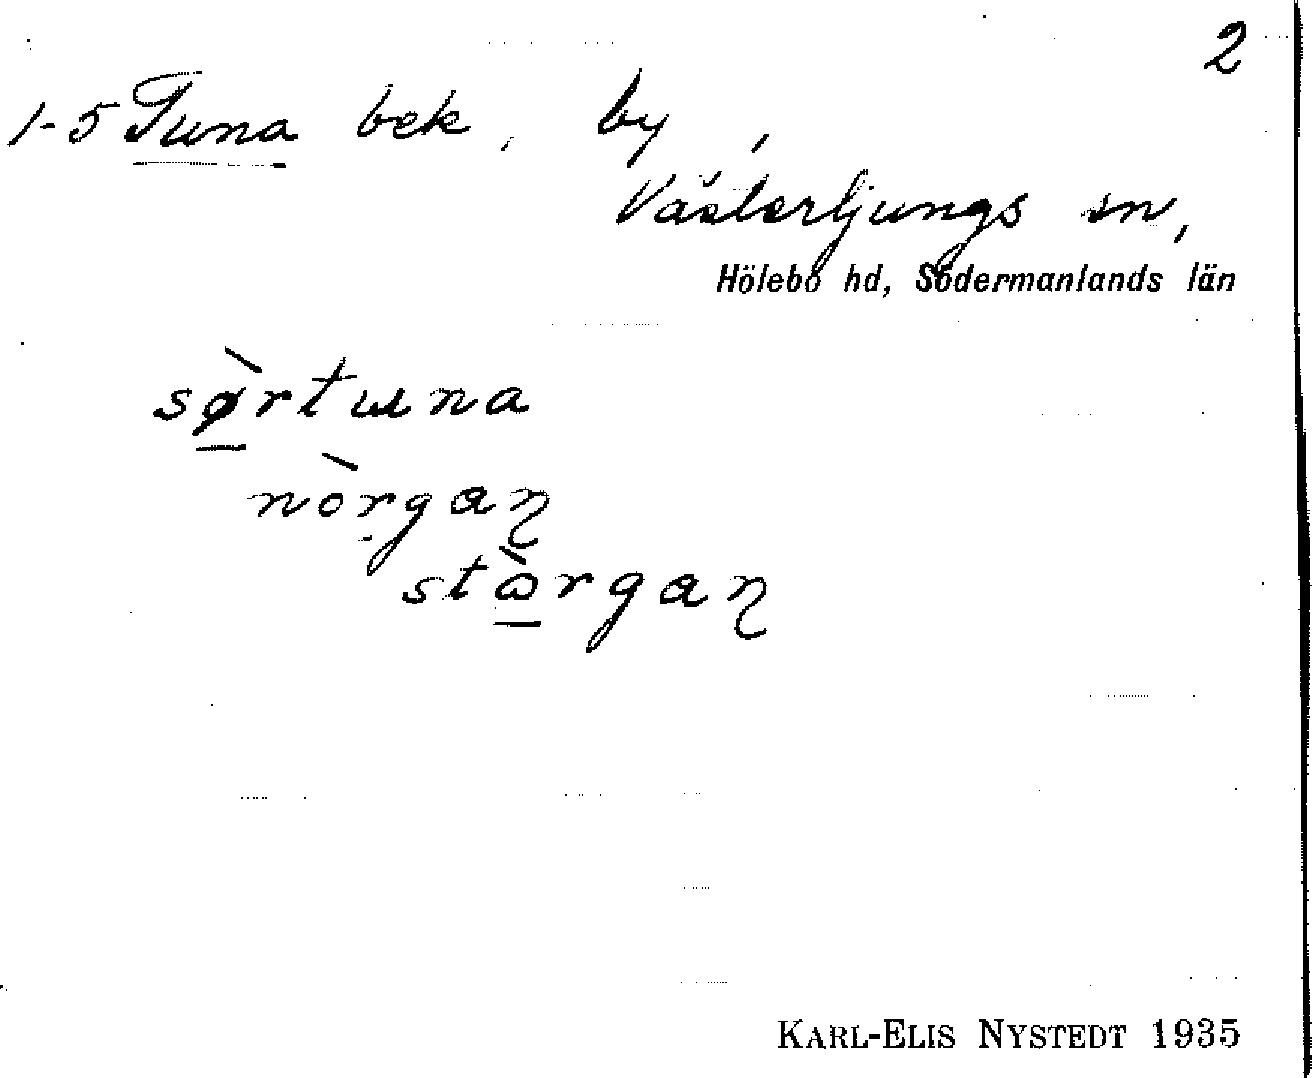 2
1-5 Tuna bek, by,
Västerljungs sn,
Hölebo hd, Södermanlands län
sø̱̀rtɯna
nòrgaɳ
stɷ̱̀rgaɳ
KARL-ELIS NYSTEDT 1935